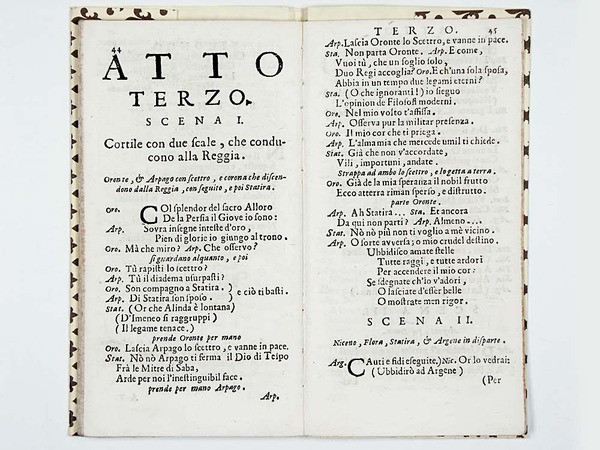 44
ATTO
TERZO.
SCENA I.
Cortile con due scale, che condu-
cono alla Reggia.
Oronte, & Arpago con scettro, e corona che discen-
dono dalla Reggia, con seguito, e poi Statira.
Oro. COl splendor del sacro Alloro
De la Persia il Giove io sono:
Arp. Sovra insegne inteste d'oro,
Pien di glorie io giungo al trono.
Oro. Mà che miro? Arp. Che osservo?
si guardano alquanto, e poi
Oro. Tù rapisti lo scettro?
Arp. Tù il diadema usurpasti?
Oro. Son compagno a Statira. )
Arp. Di Statira son sposo. ) e ciò ti basti.
Stat. (Or che Alinda è lontana)
(D'Imeneo si raggruppi)
(Il legame tenace.)
prende Oronte per mano
Oro. Lascia Arpago lo scettro, e vanne in pace.
Stat. Nò nò Arpago ti ferma il Dio di Teipo
Frà le Mitre di Saba,
Arde per noi l'inestinguibil face.
prende per mano Arpago.
Arp.
TERZO. 45
Arp. Lascia Oronte lo Scettro, e vanne in pace.
Stat. Non parta Oronte. Arp. E come,
Vuoi tù, che un soglio solo,
Duo Regi accoglia? Oro. E ch'una sola sposa,
Abbia in un tempo due legami eterni?
Sta. (O che ignoranti!) io sieguo
L'opinion de Filosofi moderni.
Oro. Nel mio volto t'affissa.
Arp. Osserva pur la militar presenza.
Oro. Il mio cor che ti priega.
Arp. L'alma mia che mercede umil ti chiede.
Stat. Già che non v'accordate,
Vili, importuni, andate.
Strappa ad ambo lo scettro, e lo getta a terra.
Oro. Già de la mia speranza il nobil frutto
Ecco atterra riman sperso, e distrutto.
parte Oronte.
Arp. Ah Statira... Sta. Et ancora
Da qui non parti? Arp. Almeno...
Stat. Nò nò più non ti voglio a mè vicino.
Arp. O sorte avversa; o mio crudel destino.
Ubbidisco amate stelle
Tutte raggi, e tutte ardori
Per accendere il mio cor:
Se sdegnate ch'io v'adori,
O lasciate d'esser belle
O mostrate men rigor.
SCENA II.
Niceno, Flora, Statira, & Argene in disparte.
Arg. CAuti e fidi eseguite,) Nic. Or lo vedrai:
(Ubbidirò ad Argene)
(Per